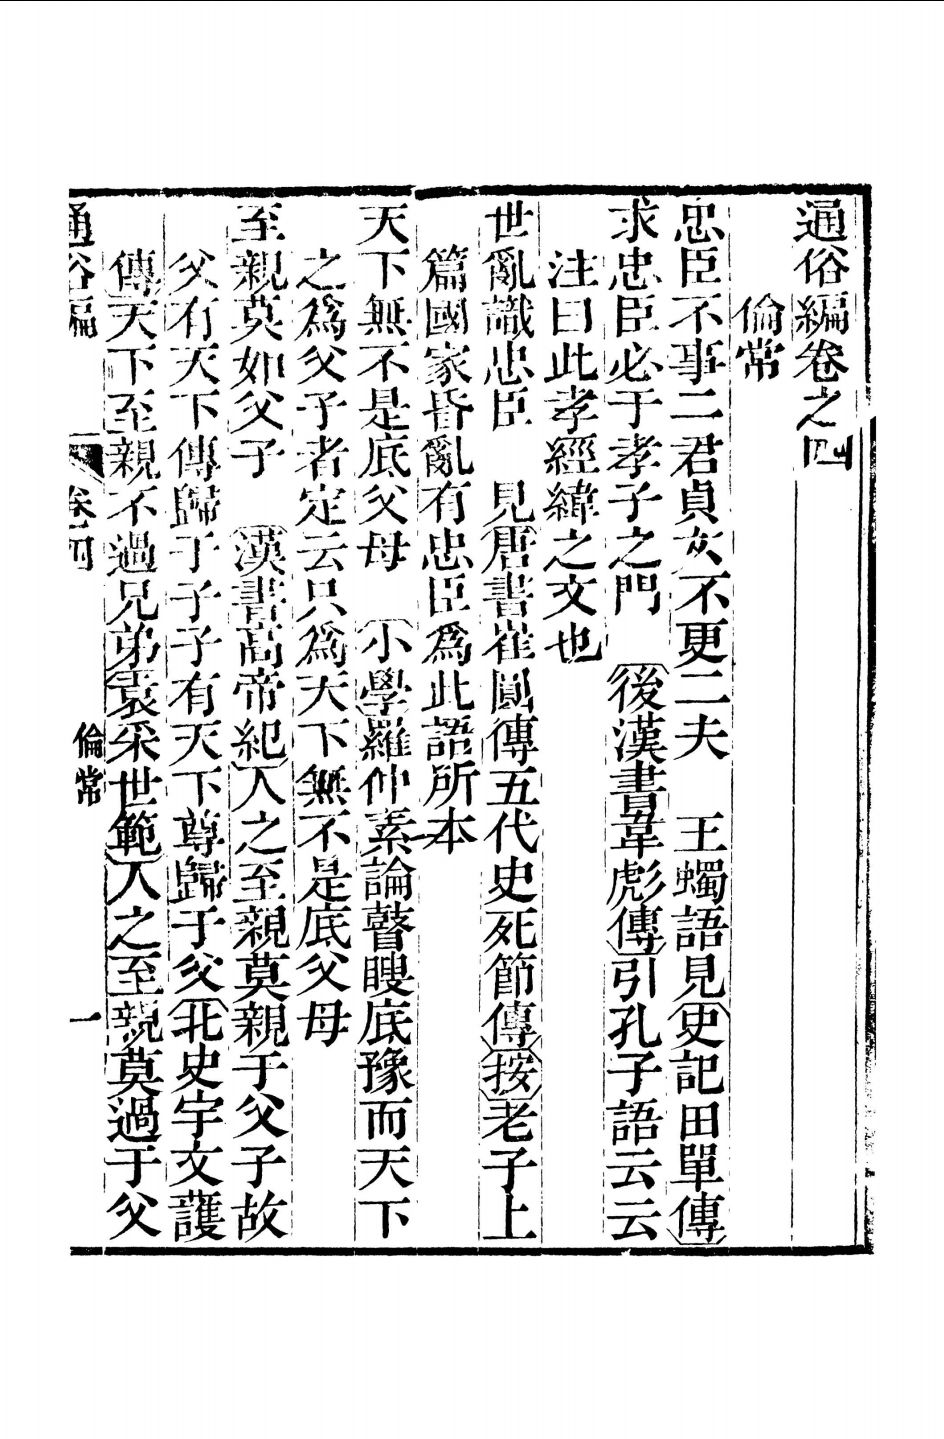 通俗編卷之四
倫常
忠臣不事二君貞女不更二夫　王蠋語見史記田單傳
求忠臣必于孝子之門　後漢書韋彪傳引孔子語云云
注曰此孝經緯之文也
世亂識忠臣　見唐書崔圓傳五代史死節傳按老子上
篇國家昏亂有忠臣爲此語所本
天下無不是底父母　小學羅仲素論瞽瞍底豫而天下
之爲父子者定云只爲天下無不是底父母
至親莫如父子　漢書高帝紀人之至親莫親于父子故
父有天下傳歸于子子有天下尊歸于父北史宇文護
傳天下至親不過兄弟袁采世範人之至親莫過于父
通俗編　卷四　倫常　一